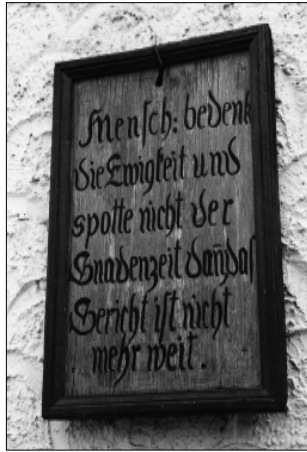 Mensch: bedenk
die Ewigkeit und
spotte nicht der
Gnadenzeit dañ das
Gericht ist nicht
mehr weit.